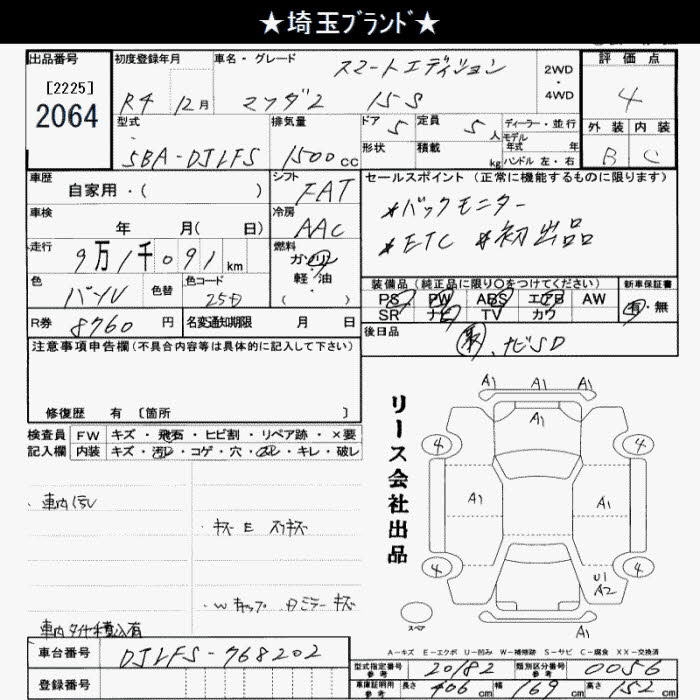 ★埼玉ブランド★
出品番号
[2225]
2064
初度登録年月
R4 12月
車名・グレード
スマートエディション
マツダ2 15S
2WD
・
4WD
評価点
4
外装 内装
B C
型式
5BA-DJLFS
排気量
1500cc
ドア 5
定員 5人
形状
積載 kg
ディーラー・並行
モデル年式 年
ハンドル 左・右
車歴
自家用・( )
シフト
FAT
車検
年 月( 日)
冷房
AAC
走行
9万1千091km
燃料
ガソリン
軽・油
・( )
色
パール
色替
色コード
25D
R券 8760円
名変通知期限 月 日
セールスポイント(正常に機能するものに限ります)
*バックモニター
*ETC *初出品
装備品(純正品に限り○をつけてください)
PS PW ABS エアB AW
SR ナビ TV カワ
新車保証書
有・無
後日品
、ナビSD
注意事項申告欄(不具合内容等は具体的に記入して下さい)
修復歴 有〔箇所 〕
検査員記入欄
FW キズ・飛石・ヒビ割・リペア跡・×要
内装 キズ・汚れ・コゲ・穴・ ・キレ・破レ
車内汚レ
・キズ E スリキズ
・Wキャップ ミラーキズ
車内タイヤ積込有
リース会社出品
A1 A1 A1
A1
4 4
A1 A1
4 4
U1
A2
A1
スペア
A-キズ E-エクボ U-凹み W-補修跡 S-サビ C-腐食 XX-交換済
車台番号 DJLFS-768202
登録番号
型式指定番号参考 20182
類別区分番号参考 0056
車庫証明用参考 長さ 406cm 幅 169cm 高さ 152cm